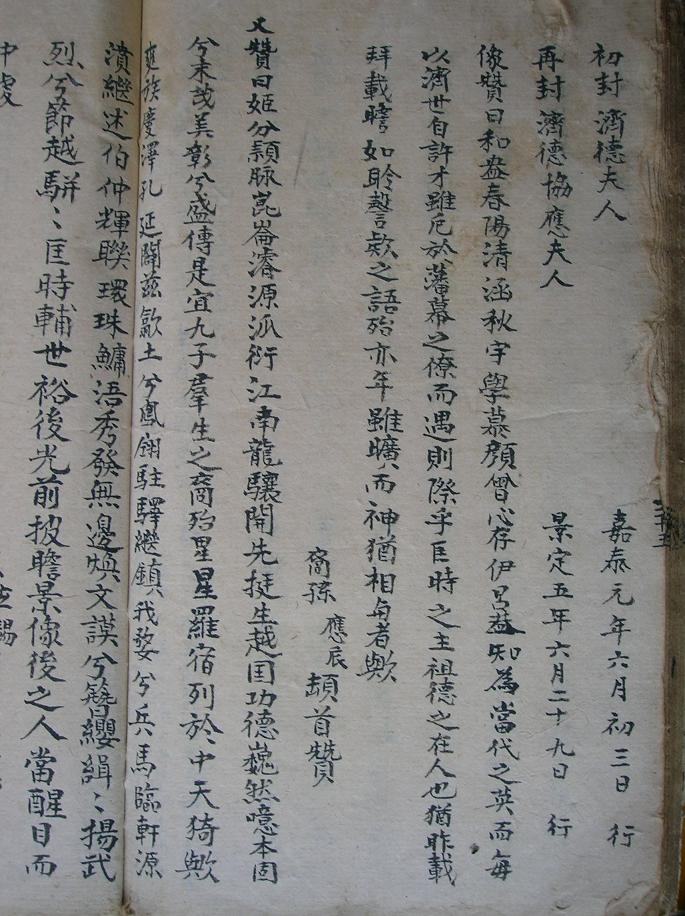 初封濟德夫人 嘉泰元年六月初三日 行
再封濟德協應夫人 景定五年六月二十九日 行
像贊曰和盎春陽清涵秋宇學慕顏曾心存伊呂益知為當代之英而每
以濟世自許才雖卮於藩幕之僚而遇則際乎匡時之主祖德之在人也猶昨載
拜載瞻如聆謦欬之語殆亦年雖曠而神猶相與者歟
裔孫 應辰 頓首贊
又贊曰姬分顙脉崑崙濬源派衍江南龍驤開先挺生越国功德巍然噫本固
兮末茂美彰兮盛傳是宜九子羣生之裔殆星星羅宿列於中天猗歟
族慶澤孔延闢茲歙土兮鳳翎駐驛繼鎮我婺兮兵馬臨軒源
濆繼述伯仲輝聯環珠鱅浯秀發無邊煥文謨兮簪纓緝〻揚武
烈兮節越駢〻匡時輔世裕後光前披瞻景像後之人當醒目而
中處